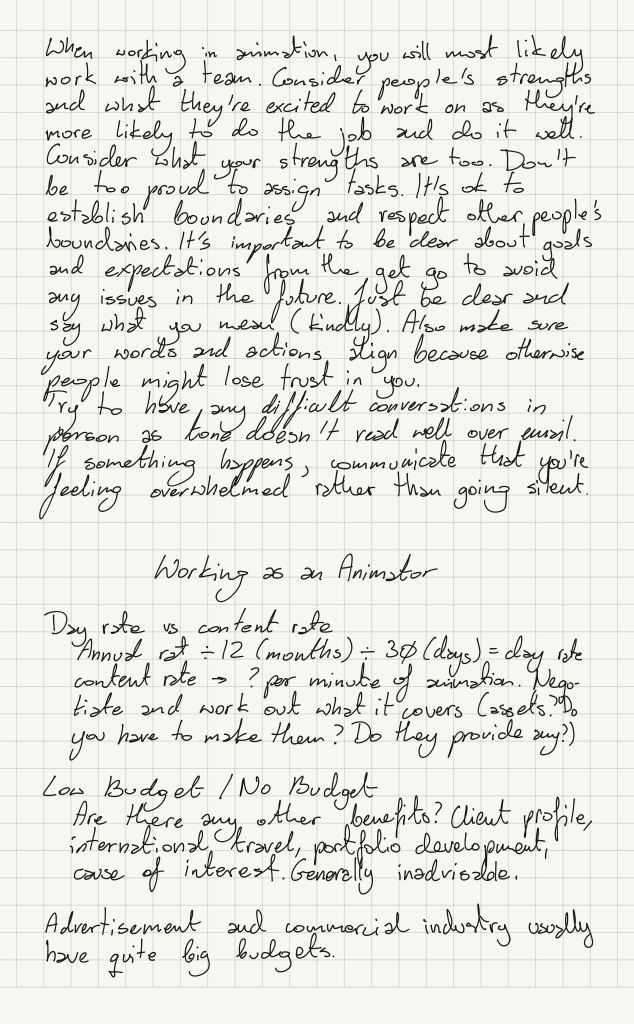 When working in animation, you will most likely
work with a team. Consider people's strengths
and what they're excited to work on as they're
more likely to do the job and do it well.
Consider what your strengths are too. Don't
be too proud to assign tasks. It's ok to
establish boundaries and respect other people's
boundaries. It's important to be clear about goals
and expectations from the get go to avoid
any issues in the future. Just be clear and
say what you mean (kindly). Also make sure
your words and actions align because otherwise
people might lose trust in you.
Try to have any difficult conversations in
person as tone doesn't read well over email.
If something happens, communicate that you're
feeling overwhelmed rather than going silent.
Working as an Animator
Day rate vs content rate
Annual rat ÷ 12 (months) ÷ 30 (days) = day rate
content rate → ? per minute of animation. Nego-
tiate and work out what it covers (assets? Do
you have to make them? Do they provide any?)
Low Budget / No Budget
Are there any other benefits? Client profile,
international travel, portfolio development,
cause of interest. Generally inadvisable.
Advertisement and commercial industry usually
have quite big budgets.